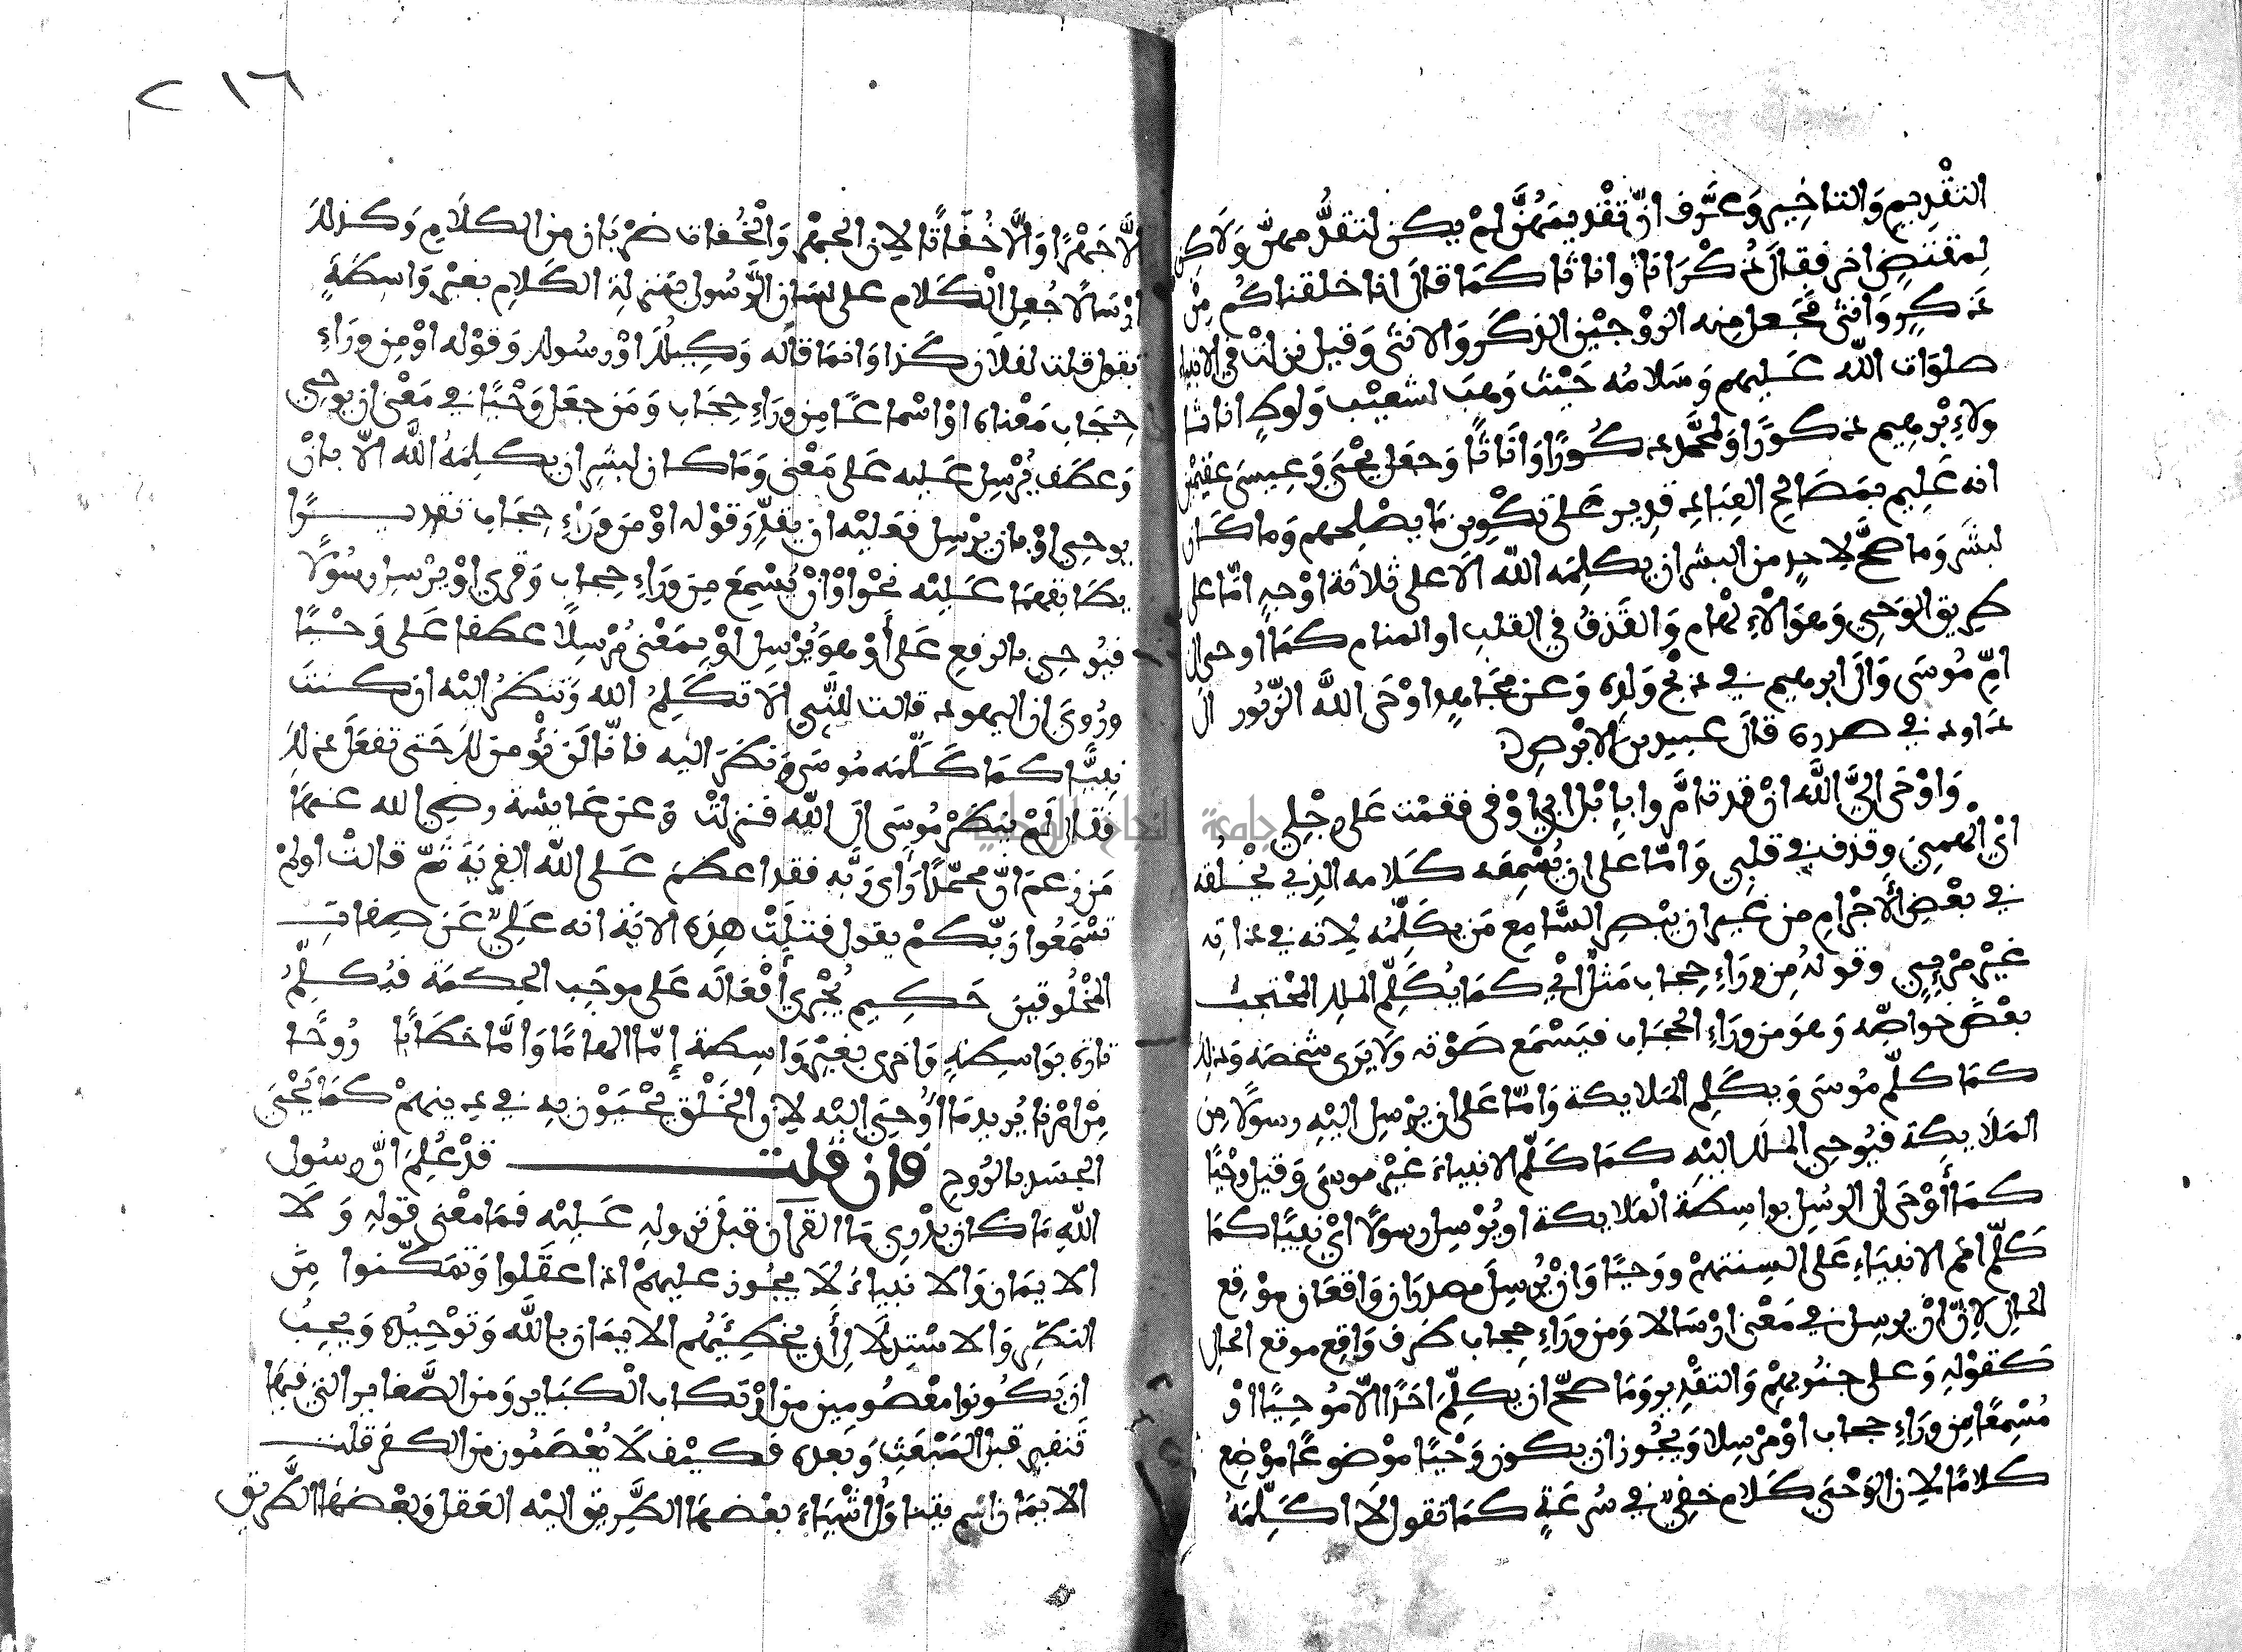 التقْدِيم وَالتاخِير وَعَرَّف انّ تقْدِيمَهُنَّ لمْ يكن لتقدُّمهنّ وَلَاكن
لِمقتضٍ اخر فقالَ ذُكْرَانا وانا ثا كمَا قالَ انا خلقناكُم مِّن
ذَكرٍ وَانثى فَجَعل مِنه الزوْجيْن الذكَرَ وَالانثى وَقيل نزلتْ في الانبياء
صلوَات الله عَليهم وَسَلامُه حَيْث وَهبَ لشعيْب وَلوط انا ثا
ولاِبْرٰهيم ذكورًا وَلمحَمَّد ذكُورًا وَانَا ثًا وَجعَل يحْيَى وَعِيسَى عَقيمَيْن
انه عَلِيم بمَصَالح العِبَادِ قدِير عَلى تكْوِين مَا يصْلِحهم وَما كَان
لبشَر وَما صحَّ لِاحدٍ من البشر ان يكلِمَه الله الاَ على ثلاثة اوْجهٍ امّا على
طرِيق الوَحْيِ وَهوَ الْاِلْهام وَالقَذفُ في القلب او المنام كمَا اوحى الى
امّ مُوسَى وَالَى ابرهيم في ذبْح وَلده وَعن مجَاهد اوْحَى اللهُ الزّبُور الَى
دَاود في صدره قالَ عبيد بن الابْرصِ
وَاوْحَى اليَّ اللَّه انْ قد تامَّروا بابل ابي اوْفى فقمْت عَلى رجْلِي
ايْ الهمني وقذف في قلبي وَامّا عَلى ان يُسْمِعَه كَلامه الذِي يخْلُقه
في بعْضِ الأَجْرامِ من غير ان يبْصِر السَّامِع مَن يكَلّمُه لِانه في ذاته
غيْر مرْءِيٍ وقولهُ مِن ورَاءِ حِجاب مَثلٌ ايْ كمَا يُكَلِّم الملك المحْتجبُ
بعْضَ خواصِّه وَهوَ من ورَاءِ الحجَاب فيَسْمَع صَوْته وَلَا يَرى شخصَه وَذلك
كمَا كلّمَ مُوسَى وَيكَلِم المَلايكة وَامّا عَلى ان يرْسِل اليْهِ رسولًا مِن
المَلَايكة فيُوحِي الملك اليْهِ كمَا كَلّم الانبياءَ غيْر موسَى وَقيل وَحْيًا
كمَا أَوْحَى الى الرسُل بواسِطة المَلايكة او يُرْسِل رسولًا ايْ نبيًّا كمَا
كَلّم امَم الانبيَاءِ عَلى السِنتهمْ ووَحيًا وَانْ يُرسِلَ مصدرَان وَاقعَان موْقع
الحَال لِانّ انْ يرسِل في مَعْنى ارْسَالا وَمن ورَاءِ حِجاب ظرف وَاقِع موقع الحالِ
كَقوْلهِ وَعلى جنُوبهِمْ وَالتقْدِير وَمَا صحّ ان يكلّمَ احَدًا الاّ مُوحيًا اوْ
مُسْمِعًا مِن ورَاءِ حجاب اوْ مُرْسِلا وَيجُوز ان يكون وَحْيًا موْضوعًا موْضِع
كلامًا لِان الوَحْيَ كَلام خفيّ في سُرعَةٍ كمَا تقول لاَ اكَلِّمهُ
الَّا جَهْرًا وَالَّا خُفَاتًا لِان الجهْرَ وَالْخُفات ضرْبَان من الكلَامِ وَكذلك
ارْسَالًا جُعِل الْكَلام على لسَان الرَّسُول بمَنزلة الكَلامِ بغيْر وَاسِطَةٍ
تقول قلت لفلاَن كَذا وَانمَا قاله وَكِيلُك اوْ رسُولك وَقوْله اوْ مِن ورَاءِ
حِجَاب مَعْناه اوْ اسْماعًا مِن ورَاءِ حِجَاب وَمَن جعَل وَحْيًا في مَعْنى ان يوحِي
وَعطَف يُرْسِل عَليه عَلى مَعْنى وَمَا كان لبشر ان يكلِمَهُ اللَّه الاّ بانْ
يوحِي اوْ بان يرْسِل فعَليْه ان يقدِّر وَقوْله اوْ مِن ورَاءِ حِجاب تقديرًا
يطَابقهمَا عَليْه نحْوا وْانْ يُسْمِعَ مِن ورَاءِ حِجاب وَقرِى اوْ يرْسِل رسُولًا
فيُوحِي بالرفع عَلى أَوْ هوَ يُرْسِل اوْ بمَعْنى مُرْسِلًا عَطفا عَلى وَحْيًا
ورُويَ ان اليهود قالت للنَّبِي الاَ تكَلِمُ الله وَتنظرُ اليْه ان كنتَ
نبيًّا كمَا كَلّمَه مُوسَى وَنظرَ اليه فانّا لَن نُؤْمن لك حَتى تفعَل ذلك
فقال لَمْ ينظُرْ مُوسَى الَى اللّه فنزلتْ وَعن عَايشة رضِي الله عنهَا
مَن زعمَ انّ محمَّدًا رَأى رَبَّه فقد اعظمَ عَلى الله الفِرْيَةَ ثمّ قالتْ اوَلمْ
تسْمَعُوا رَبّكمْ يقول فتلَتْ هذِه الايَة انه عَلِيّ عَن صِفاتِ
المخْلُوقين حَكِيم يُجْري أَفْعَالَه عَلى موجَب الحِكمَة فيُكلِّمُ
تارَة بوَاسِطةٍ وَاخرى بغيْر وَاسِطة إِمّا الهامًا وَامَّا خطَابًا رُوحًا
مِّنْ امْرنا يُريد مَا أُوحِيَ اليْه لِانّ الخَلْق يحْيَوْن به في دِينهمْ كمَا يَحْيَى
الجسَد بالرُوح فَان قلت قدْ عُلِمَ انّ رسُول
اللهِ مَا كان يدْرِي مَا القرآن قبلَ نزولهِ عَليْه فمَا معْنى قولهِ وَلَا
الايمَان وَالانبيَاءُ لَا يجُوز عليهمْ اذا عقَلوا وَتمَكّنوا مِن
النظَر وَالاسْتِدْلَالِ أَن يخطِئَهُم الايمَان باللَّه وَتوْحِيدُه وَيجِبُ
ان يَكُونوا معْصُومِين مِن ارْتكاب الْكبَاير وَمن الصَّغاير التي فيهَا
تَنفير قبل المَبْعَثِ وَبعده فكيْف لَا يُعْصَمُون من الكفر قلت
الايمَان اسْم يتناوَلُ اشْيَاءَ بعْضهَا الطّرِيق اليْه العَقل وَبعْضهَا الطَّرِيق
٢١٦
جامعة النجاح الوطنية